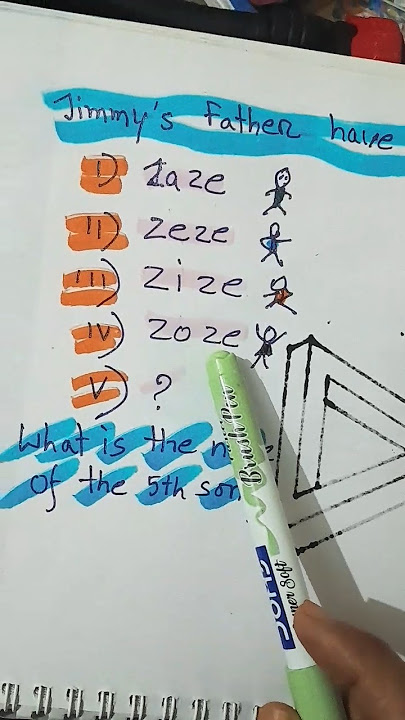 Jimmy's Father have
I) Zaze
II) Zeze
III) Zize
IV) Zoze
V) ?
What is the
of the 5th son
Brush Pen